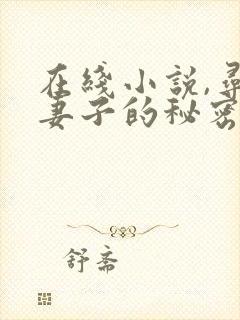 在綫小説,尋
妻子的秘密
舒斋